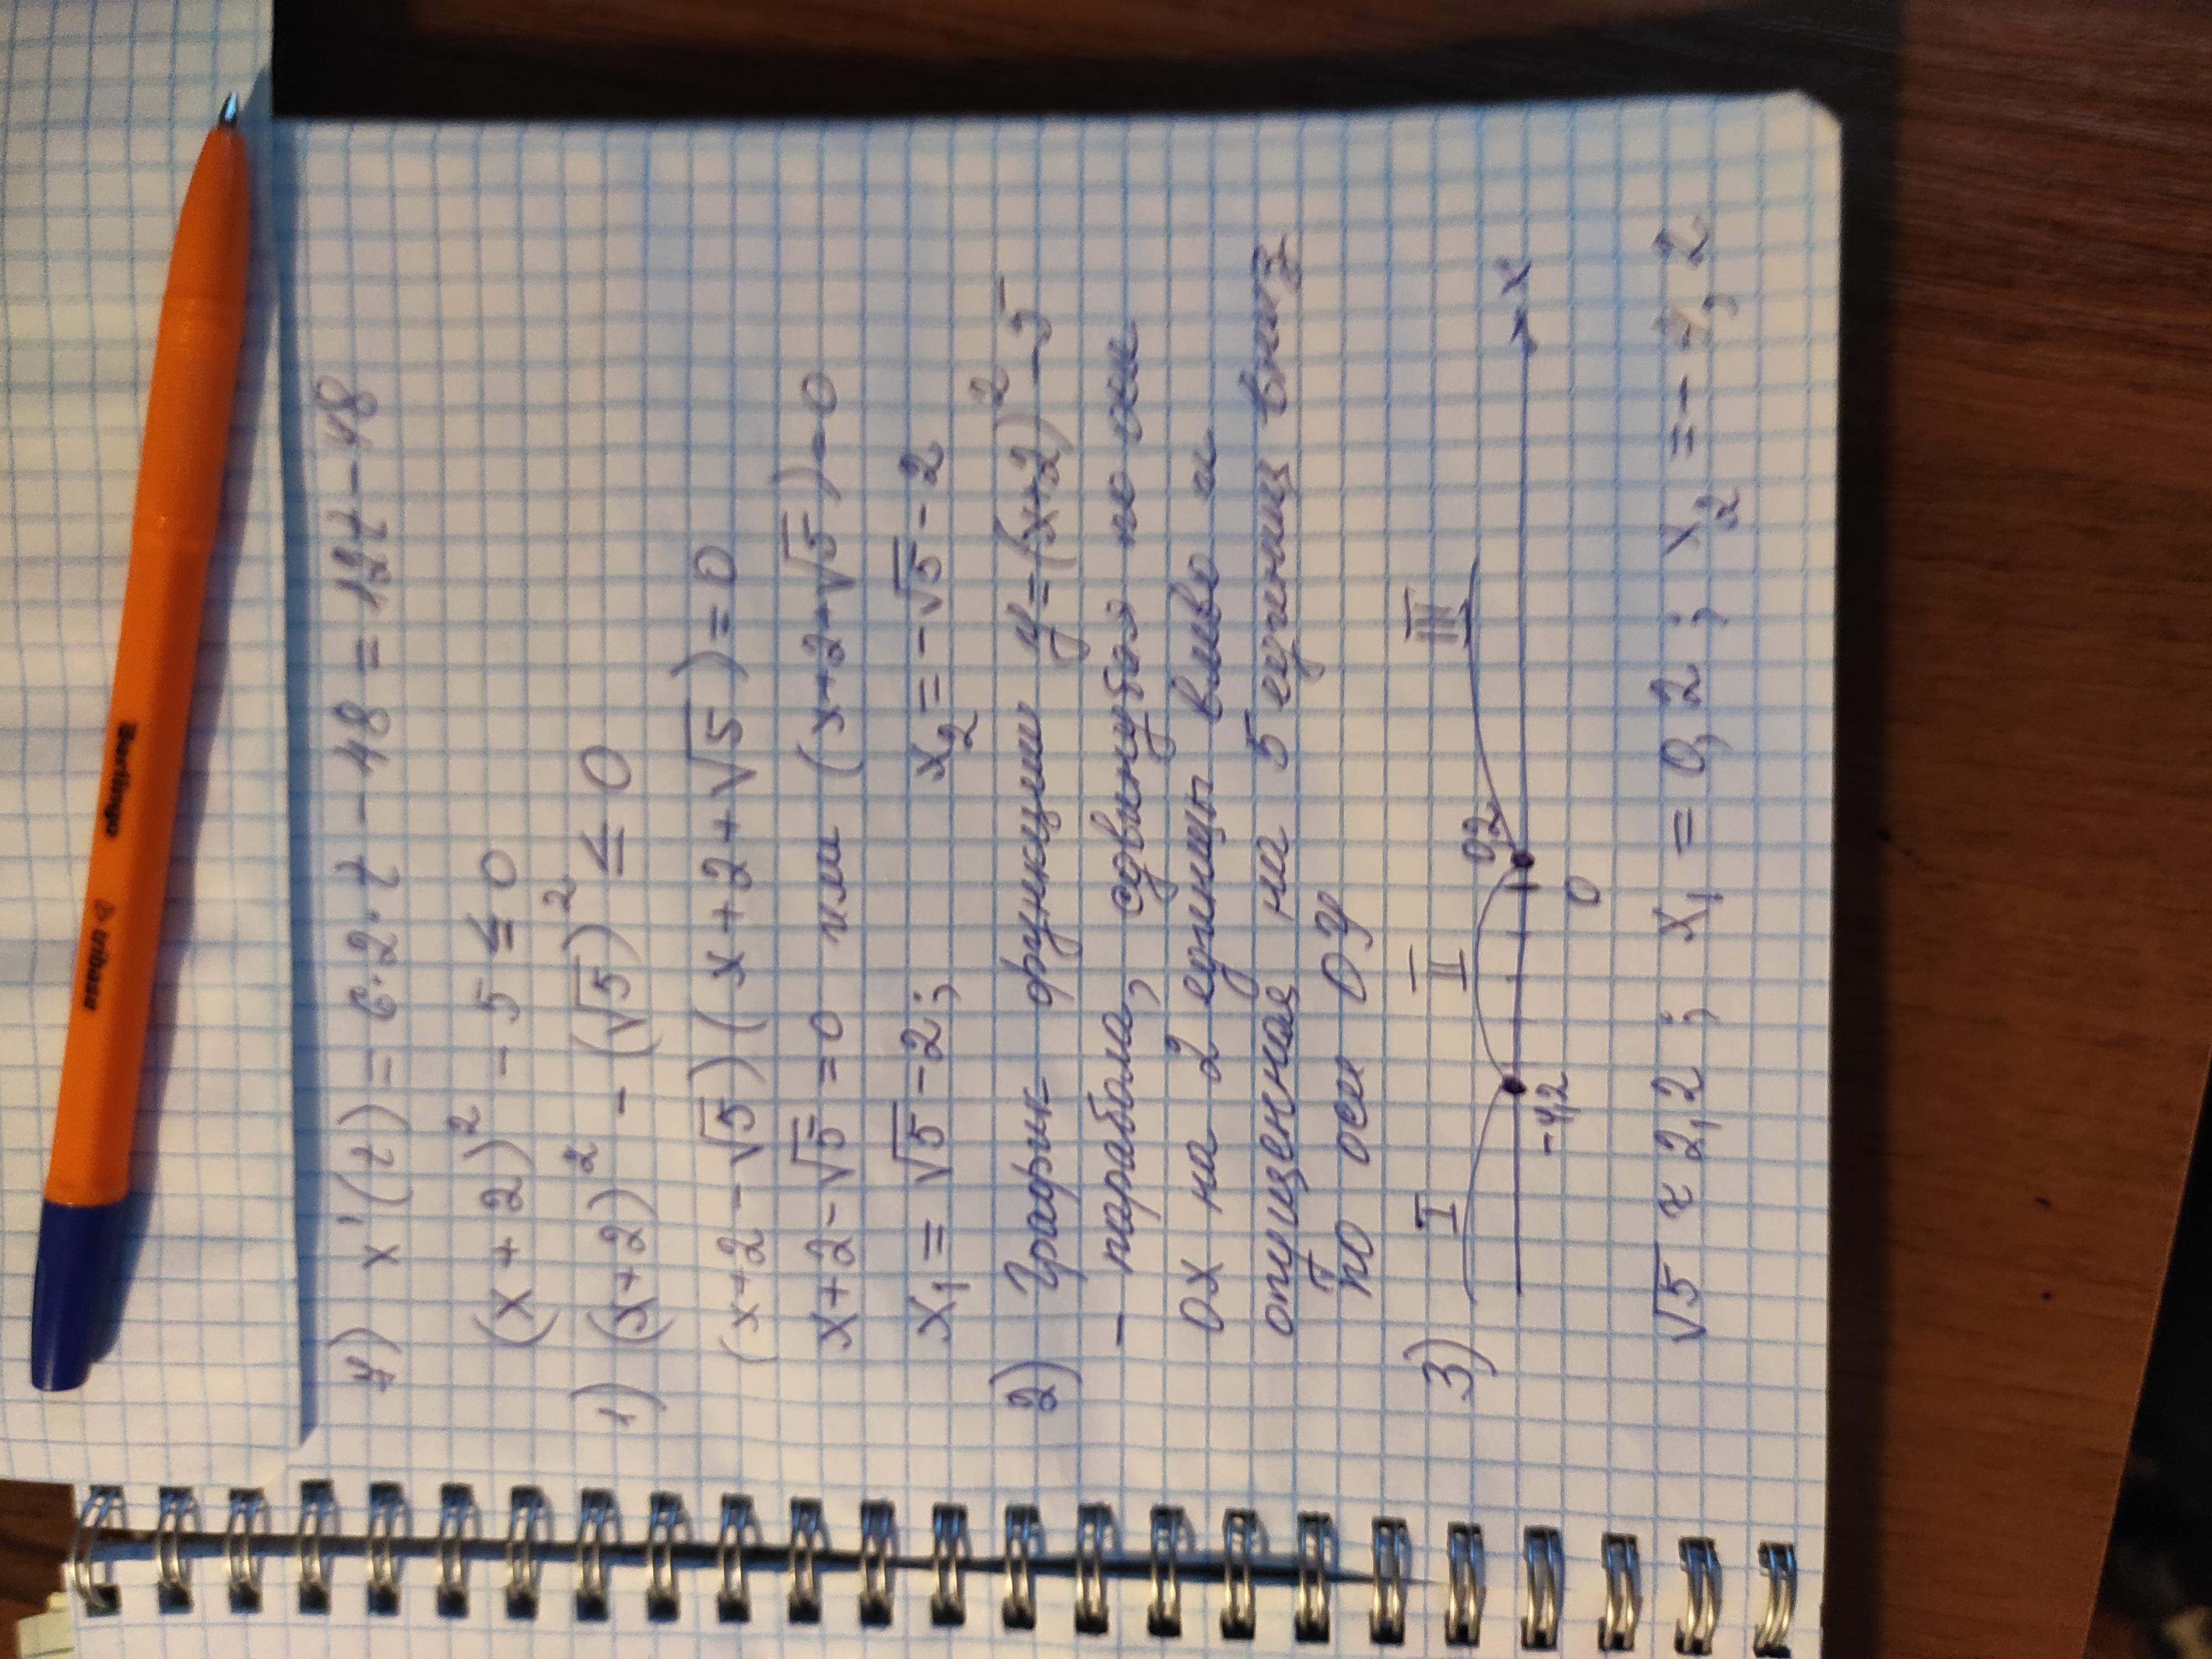 Berlingo Tribase
4) x'(t) = 6·2·t - 48 = 12t - 48
(x+2)² - 5 ≤ 0
1) (x+2)² - (√5)² ≤ 0
(x+2-√5)(x+2+√5)=0
x+2-√5=0 или (x+2+√5)=0
x₁=√5-2; x₂=-√5-2
2) График функции y=(x+2)²-5
- парабола, сдвинутая по оси
OX на 2 единицы влево и
опущенная на 5 единиц вниз
по оси OY
3) I II III
-4,2 0,2 x
0
√5 ≈ 2,2; x₁ = 0,2; x₂ = -4,2